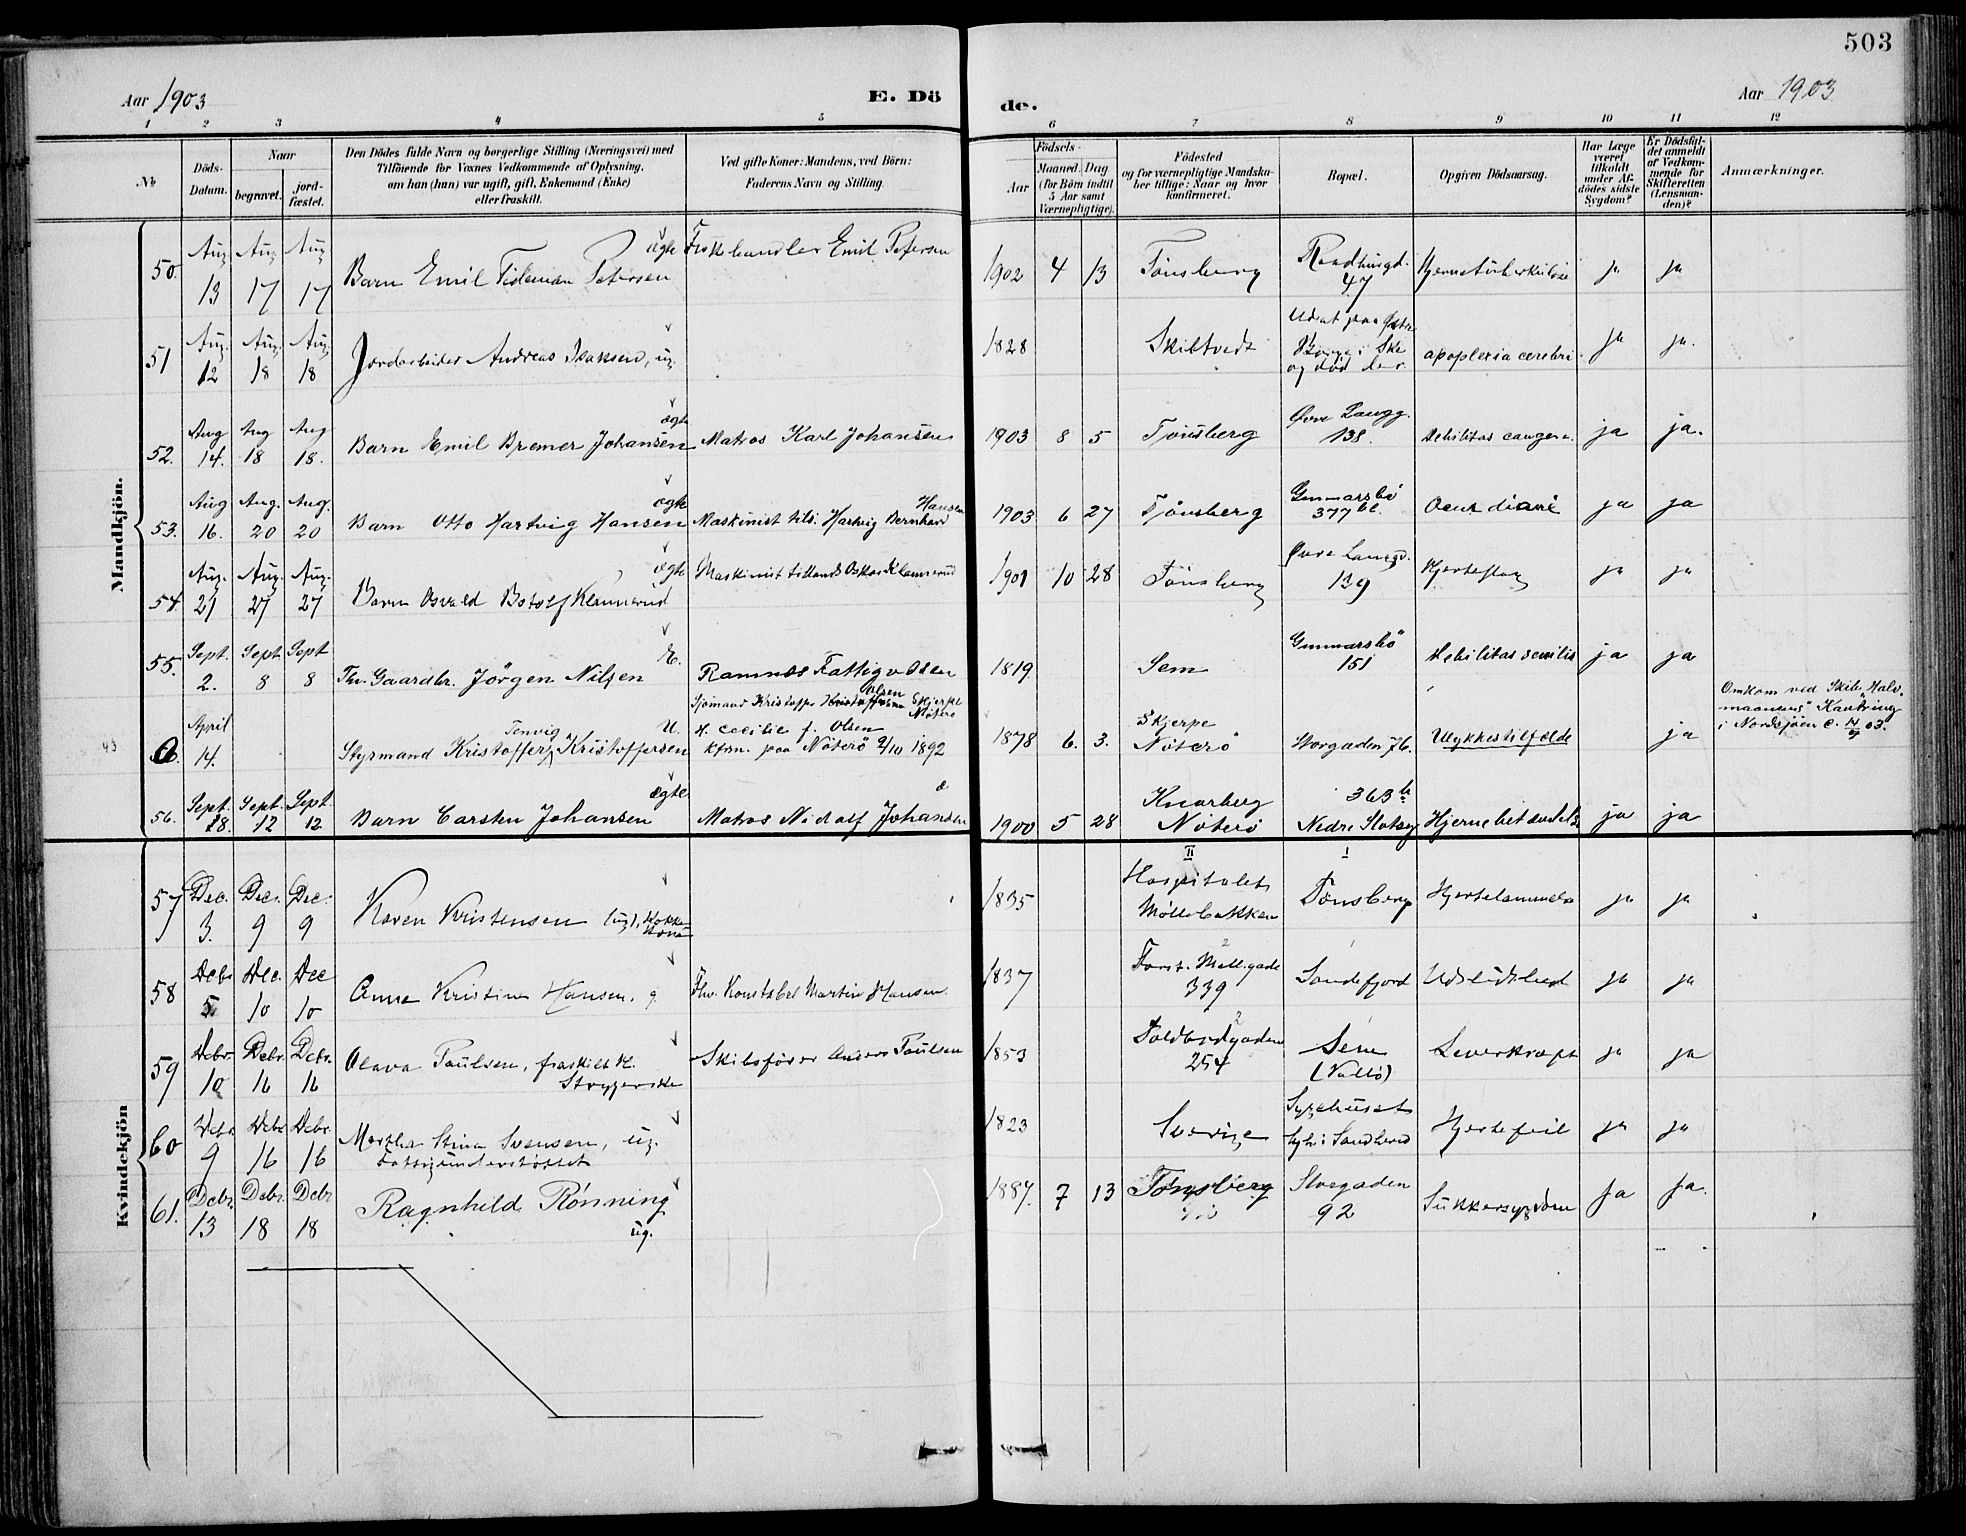 503
Aar 1903
E. Dö
de.
Aar 1903
1 2 3 4 5 6 7 8 9 10 11 12
№
Döds-
Datum.
Naar
begravet.
jord-
fæstet.
Den Dödes fulde Navn og borgerlige Stilling (Næringsvei) med
Tilföiende for Voxnes Vedkommende af Oplysning,
om han (hun) var ugift, gift, Enkemand (Enke)
eller fraskilt.
Ved gifte Koner: Mandens, ved Börn:
Faderens Navn og Stilling.
Födsels-
Aar
Maaned. Dag
(for Börn indtil
5 Aar samt
Værnepligtige).
Födested
og for værnepligtige Mandska-
ber tillige: Naar og hvor
konfirmeret.
Bopæl.
Opgiven Dödsaarsag.
Har Læge
været
tilkaldt
under Af-
dödes sidste
Sygdom?
Er Dödsfal-
det anmeldt
af Vedkom-
mende for
Skifteretten
(Lensman-
den)?
Anmærkninger.
Mandkjön.
50. Aug 13 Aug. 17 Aug 17 Barn Emil Tideman Petersen ægte Fiskehandler Emil Petersen 1902 4 13 Tønsberg 47 Hjernetuberkulose ja ja
51 Aug. 12 Aug. 18 Aug. 18 Jordarbeider Andreas Isaksen, ug. 1828 Skibtvedt og død der apoplexia cerebri. ja ja.
52. Aug 14. Aug 18 Aug 18. Barn Emil Bremer Johansen ægte Matros Karl Johansen 1903 8 5 Tønsberg Øvre Langg. 138. debilitas congen. ja ja.
53. Aug 16. Aug. 20 Aug. 20 Barn Otto Hartvig Hansen ægte Maskinist tils. Hartvig Bernhard Hansen 1903 6 27 Tjønsberg Gunnarsbö 377 ja ja
54 Aug. 21 Aug. 27 Aug. 27 Barn Osvald Botolf Klaumerud ægte Maskinist tillands Oskar Klaumerud 1901 10 28 Tønsberg Øvre Langg. 139 Hjerteslag ja ja
55. Sept. 2. Sept 8 Sept 8 Fhv. Gaardbr. Jörgen Nilsen E. Ramnes Fattigv. 1819 Sem Gunnarsbö 151 debilitas senilis ja ja
43 April 14. Styrmand Kristoffer Tenvig Kristoffersen U. Sjömand Kristoffer Olsen Skjerpe Nøterø
H. Cecilie f. Olsen
kfrm. paa Nøterø 2/10 1892
1878 6. 3. Skjerpe Nøterø Storgaden 76. Ulykkestilfælde ja
Omkom ved Skib „Halv-
maanens“ Kantring
i Nordsjøen
56. Sept. 18. Sept. 12 Sept. 12 Barn Carsten Johansen ægte Matros Nidolf Johansen 1900 5 28 Knarberg Nøterø 363 b Nedre Slotsg Hjernebetændelse ja ja
Kvindekjön
57 Dec. 3. Dec. 9 Dec. 9 Karen Kristensen (ug), Kokke kone 1835 II Hospitalet Møllebakken I Tønsberg Hjertelammelse ja ja
58 Debr 5 Dec. 10 Dec 10 Anna Kristine Hansen, g. Fhv. Konstabel Martin Hansen. 1837 2 Forst. Møll.gade 339 Sandefjord Udslidthed ja ja
59 Debr. 10 Debr. 16 Debr. 16 Olava Paulsen, fraskilt H. Strygerske Skibsfører Anders Paulsen 1853 2 Toldbodgaden 254 Sem (Valløi) Leverkræft ja ja
60 Debr 9 Debr 16 Debr. 16 Martha Stina Svensen, ug. Fattigunderstøttet 1823 Sverige Sygehuset Hjertefeil ja ja
61. Debr. 13 Debr. 18 Debr 18 Ragnhild Rønning ug. 1887. 7 13 Tønsberg Storgaden 92 Sukkersygdom Ja Ja.